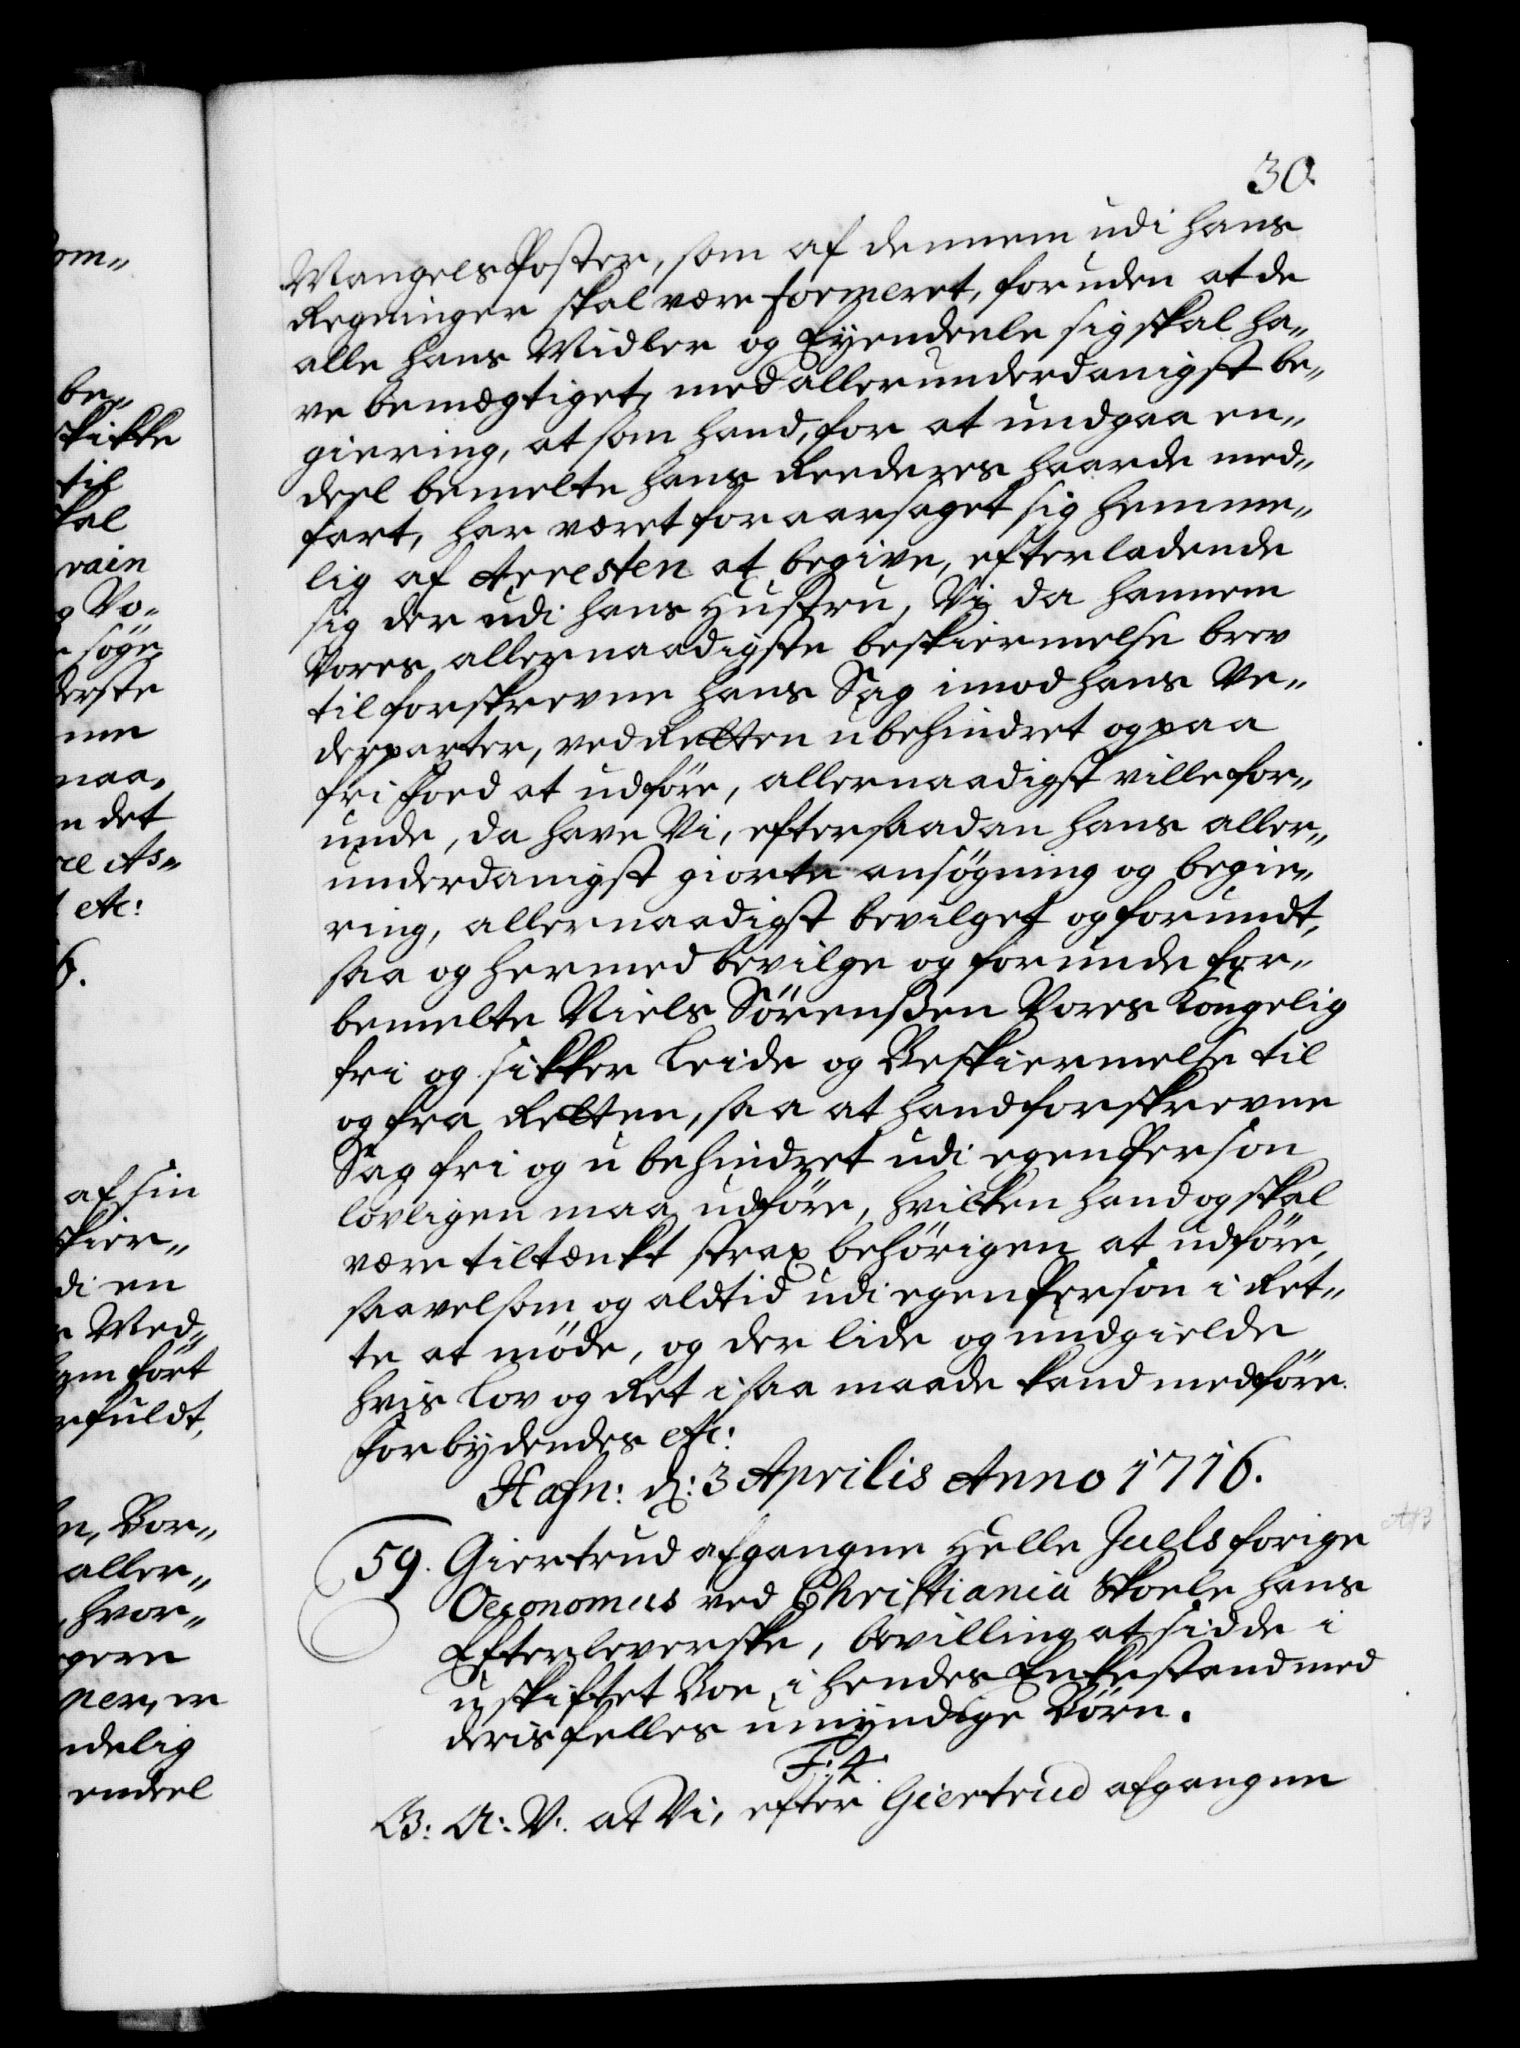 30.
Mangels Poster, som af dennem udi hans
Regninger skal være formeret, foruden at de
alle hans Midler og Eyendeele sig skal ha„
ve bemægtiget, med allerunderdanigst be„
giering, at som hand, for at undgaa en„
deel bemelte hans Reederes haarde med„
fart, har været foraarsaget sig hemme„
lig af Arresten at begive, efterladende
sig der udi hans Hustru, Vi da hannem
Vores allernaadigste beskiermelse brev
til forskrevne hans Sag imod hans Ve„
derparter, ved Retten ubehindret og paa
fri Foed at udføre, allernaadigst ville for„
unde, da have Vi, efter saadan hans aller„
underdanigst giorte ansøgning og begie„
ring, allernaadigst bevilget og forundt,
saa og hermed bevilge og forunde for„
bemelte Niels Sørenßen Vores Kongelig
fri og sikker Leide og Beskiermelse til
og fra Retten, saa at hand forskrevne
Sag fri og ubehindret udi egen Person
lovligen maa udføre, hvilken hand og skal
være tiltænkt strax behørigen at udføre,
saavelsom og altid udi egen Person i Ret„
te at møde, og der lide og undgielde
hvis Lov og Ret i saa maade kand medføre.
Forbydendes etc:
Hafn: d: 3 Aprilis Anno 1716.
59. Giertrud afgangne Helle Juels forige
Oeconomus ved Christiania Skoele hans
Efterleverske, bevilling at sidde i
uskiftet Boe i hendes Enkestand med
deris felles umyndige Børn.
F: 4.
G: A: V: at Vi, efter Giertrud afgangne